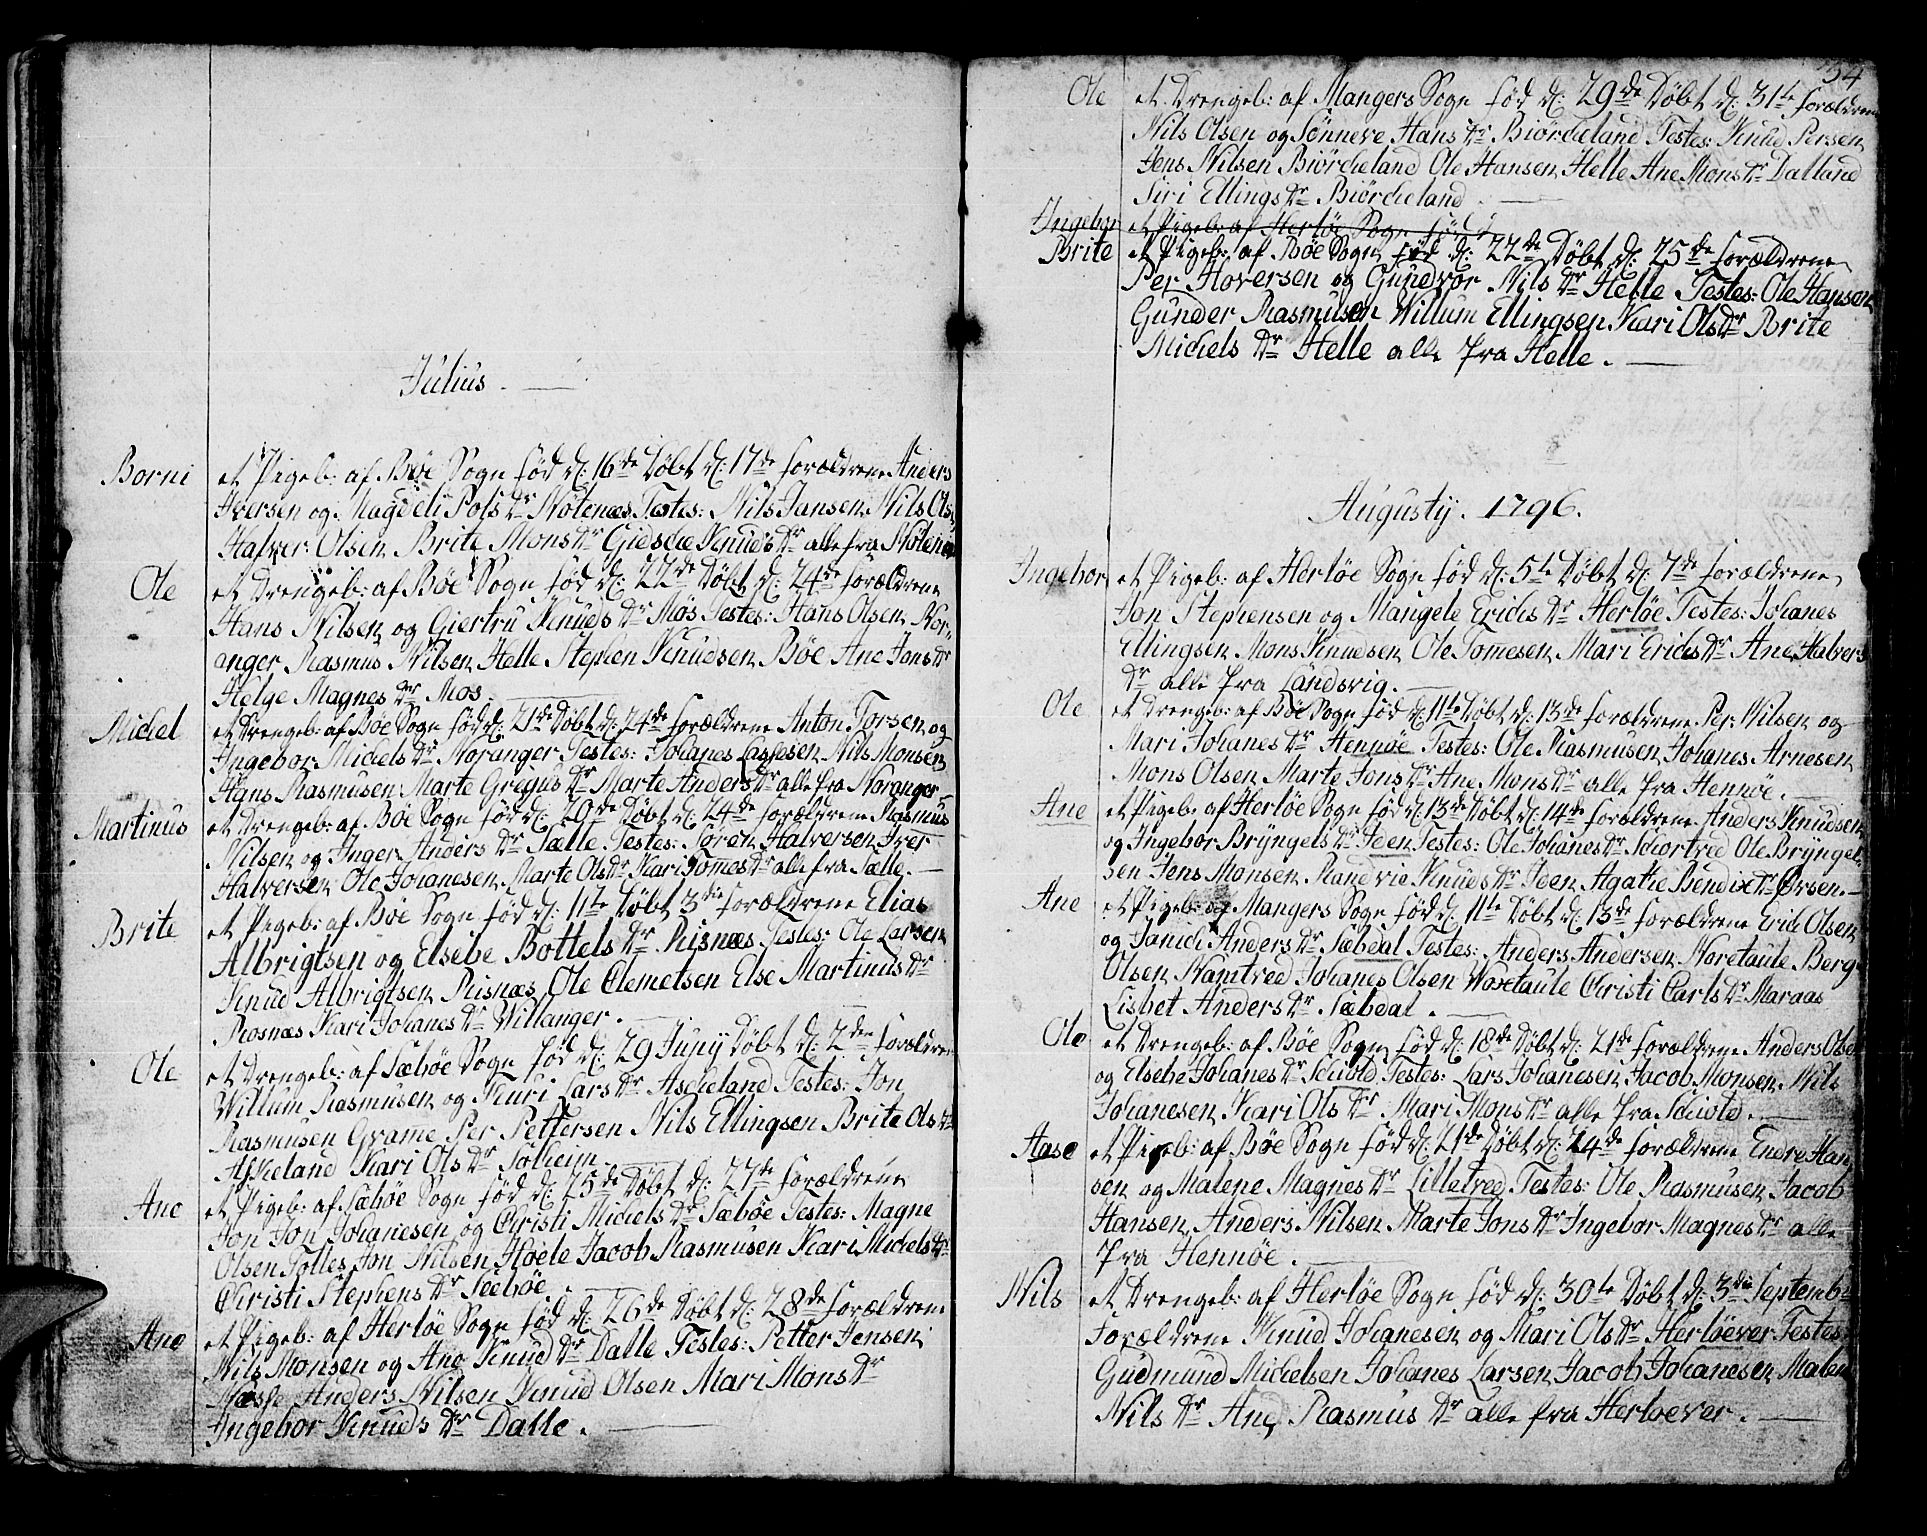 Julius.
Borni et Pigeb: af Bøe Sogn fød d: 16de Døbt d: 17de forældrene Anders
Iversen og Magdeli Pols Dr Nøtenæs Testes: Nils Jansen Nils Ols
Halver Olsen Brite Mons Dr Gidsche Knuds Dr alle fra Nøtenæs
Ole et Drengeb: af Bøe Sogn fød d: 22de Døbt d: 24de forældrene
Hans Nilsen og Giertru Knuds Dr Møs Testes: Hans Olsen Nor-
anger Rasmus Nilsen Helle Stephen Knudsen Bøe Ane Jons Dr
Helge Magnes Dr Mos.
Michel et Drengeb: af Bøe Sogn fød d: 21de Døbt d: 24de forældrene Anton Torsen og
Ingebor Michels Dr Noranger Testes: Johanes Lassesen Nils Monsen
Hans Rasmusen Marte Gregus Dr Marte Anders Dr alle fra Noranger
Martinus et Drengeb: af Bøe Sogn fød d: 20de Døbt d: 24de forældrene Rasmus
Nilsen og Inger Anders Dr Sælle Testes: Søren Halversen Iver
Halversen Ole Johanesen Marte Ols Dr Kari Tomes Dr alle fra Sælle.
Brite et Pigeb: af Bøe Sogn fød d: 11te Døbt 3die forældrene Elias
Albrigtsen og Elsebe Bottels Dr Risnæs Testes: Ole Larsen
Knud Albrigtsen Risnæs Ole Clemetsen Else Martinus Dr
Rosnæs Kari Johanes Dr Willanger.
Ole et Drengeb: af Sæbøe Sogn fød d: 29 Juny Døbt d: 2den forældren
Willum Rasmusen og Kuri Lars Dr Ascheland Testes: Jon
Rasmusen Grame Per Pettersen Nils Ellingsen Brite Ols Dr
Askeland Kari Ols Dr Solheim
Ane et Pigeb: af Sæbøe Sogn fød d: 25de Døbt d: 27de forældrene
Jon Jon Johanesen og Christi Michels Dr Sæbøe Testes: Magne
Olsen Tolles Jon Nilsen Høele Jacob Rasmusen Kari Michels Dr
Christi Stephens Dr Seebøe.
Ane et Pigeb: af Herløe Sogn fød d: 26de Døbt d: 28de forældrene
Nils Monsen og Ane Knud Dr Dalle Testes: Petter Jensen
Næsse Anders Nilsen Knud Olsen Mari Mons Dr
Ingebor Knuds Dr Dalle.
54
Ole et Drengeb: af Mangers Sogn fød d: 29de Døbt d: 31te forældrene
Nils Olsen og Sønneve Hans Dr Biørcheland Testes: Knud Persen
Jens Nilsen Biørcheland Ole Hansen Helle Ane Mons Dr Dalland
Siri Ellings Dr Biørcheland.
Ingebor et Pigeb: af Herløe Sogn fød d
Brite et Pigeb: af Bøe Sogn fød d: 22de Døbt d: 25de forældrene
Per Hoversen og Gundvor Nils Dr Helle Testes: Ole Hansen
Gunder Rasmusen Willum Ellingsen Kari Ols Dr Brite
Michels Dr Helle alle fra Helle.
Augusty. 1796.
Ingebor et Pigeb: af Herløe Sogn fød d: 5te Døbt d: 7de forældrene
Jon Stephensen og Mangele Erichs Dr Herløe Testes: Johanes
Ellingsen Mons Knudsen Ole Tomesen Mari Erichs Dr Ane Halvers
Dr alle fra Landsvig.
Ole et Drengeb: af Bøe Sogn fød d: 11te Døbt d: 13de forældrene Per Nilsen og
Mari Johanes Dr Hennøe Testes: Ole Rasmusen Johanes Arnesen
Mons Olsen Marte Jons Dr Ane Mons Dr alle fra Hennøe.
Ane et Pigeb: af Herløe Sogn fød d: 13de Døbt d: 14de forældrene Anders Knudsen
og Ingebor Bryngels Dr Iden Testes: Ole Johanes Dr Schortved Ole Bryngel-
sen Jens Monsen Randvie Knuds Dr Iden Agatie Bendix Dr Ørsen.
Ane et Pigeb: af Mangers Sogn fød d: 11te Døbt d: 13de forældrene Erich Olsen
og Janich Anders Dr Sæbdal Testes: Anders Andersen Noretaule Berg
Olsen Namtved Johanes Olsen Noretaule Christi Carls Dr Maraas
Lisbet Anders Dr Sæbdal.
Ole et Drengeb: af Bøe Sogn fød d: 18de Døbt d: 21de forældrene Anders Olse
og Elsebe Johanes Dr Schold Testes: Lars Johanesen Jacob Monsen Nils
Johanesen Kari Ols Dr Mari Mons Dr alle fra Schiold.
Aase et Pigeb: af Bøe Sogn fød d: 21de Døbt d: 24de forældrene Endre Han
sen og Malene Magnes Dr Lilletved Testes: Ole Rasmusen Jacob
Hansen Anders Nilsen Marte Jons Dr Ingebor Magnes Dr alle
fra Hennøe.
Nils et Drengeb: af Herløe Sogn fød d: 30te Døbt d: 3die Septemb
Forældrene Knud Johanesen og Mari Ols Dr Herløever Testes:
Gudmund Michelsen Johanes Larsen Jacob Johanesen Malen
Nils Dr Ane Rasmus Dr alle fra Herløever.